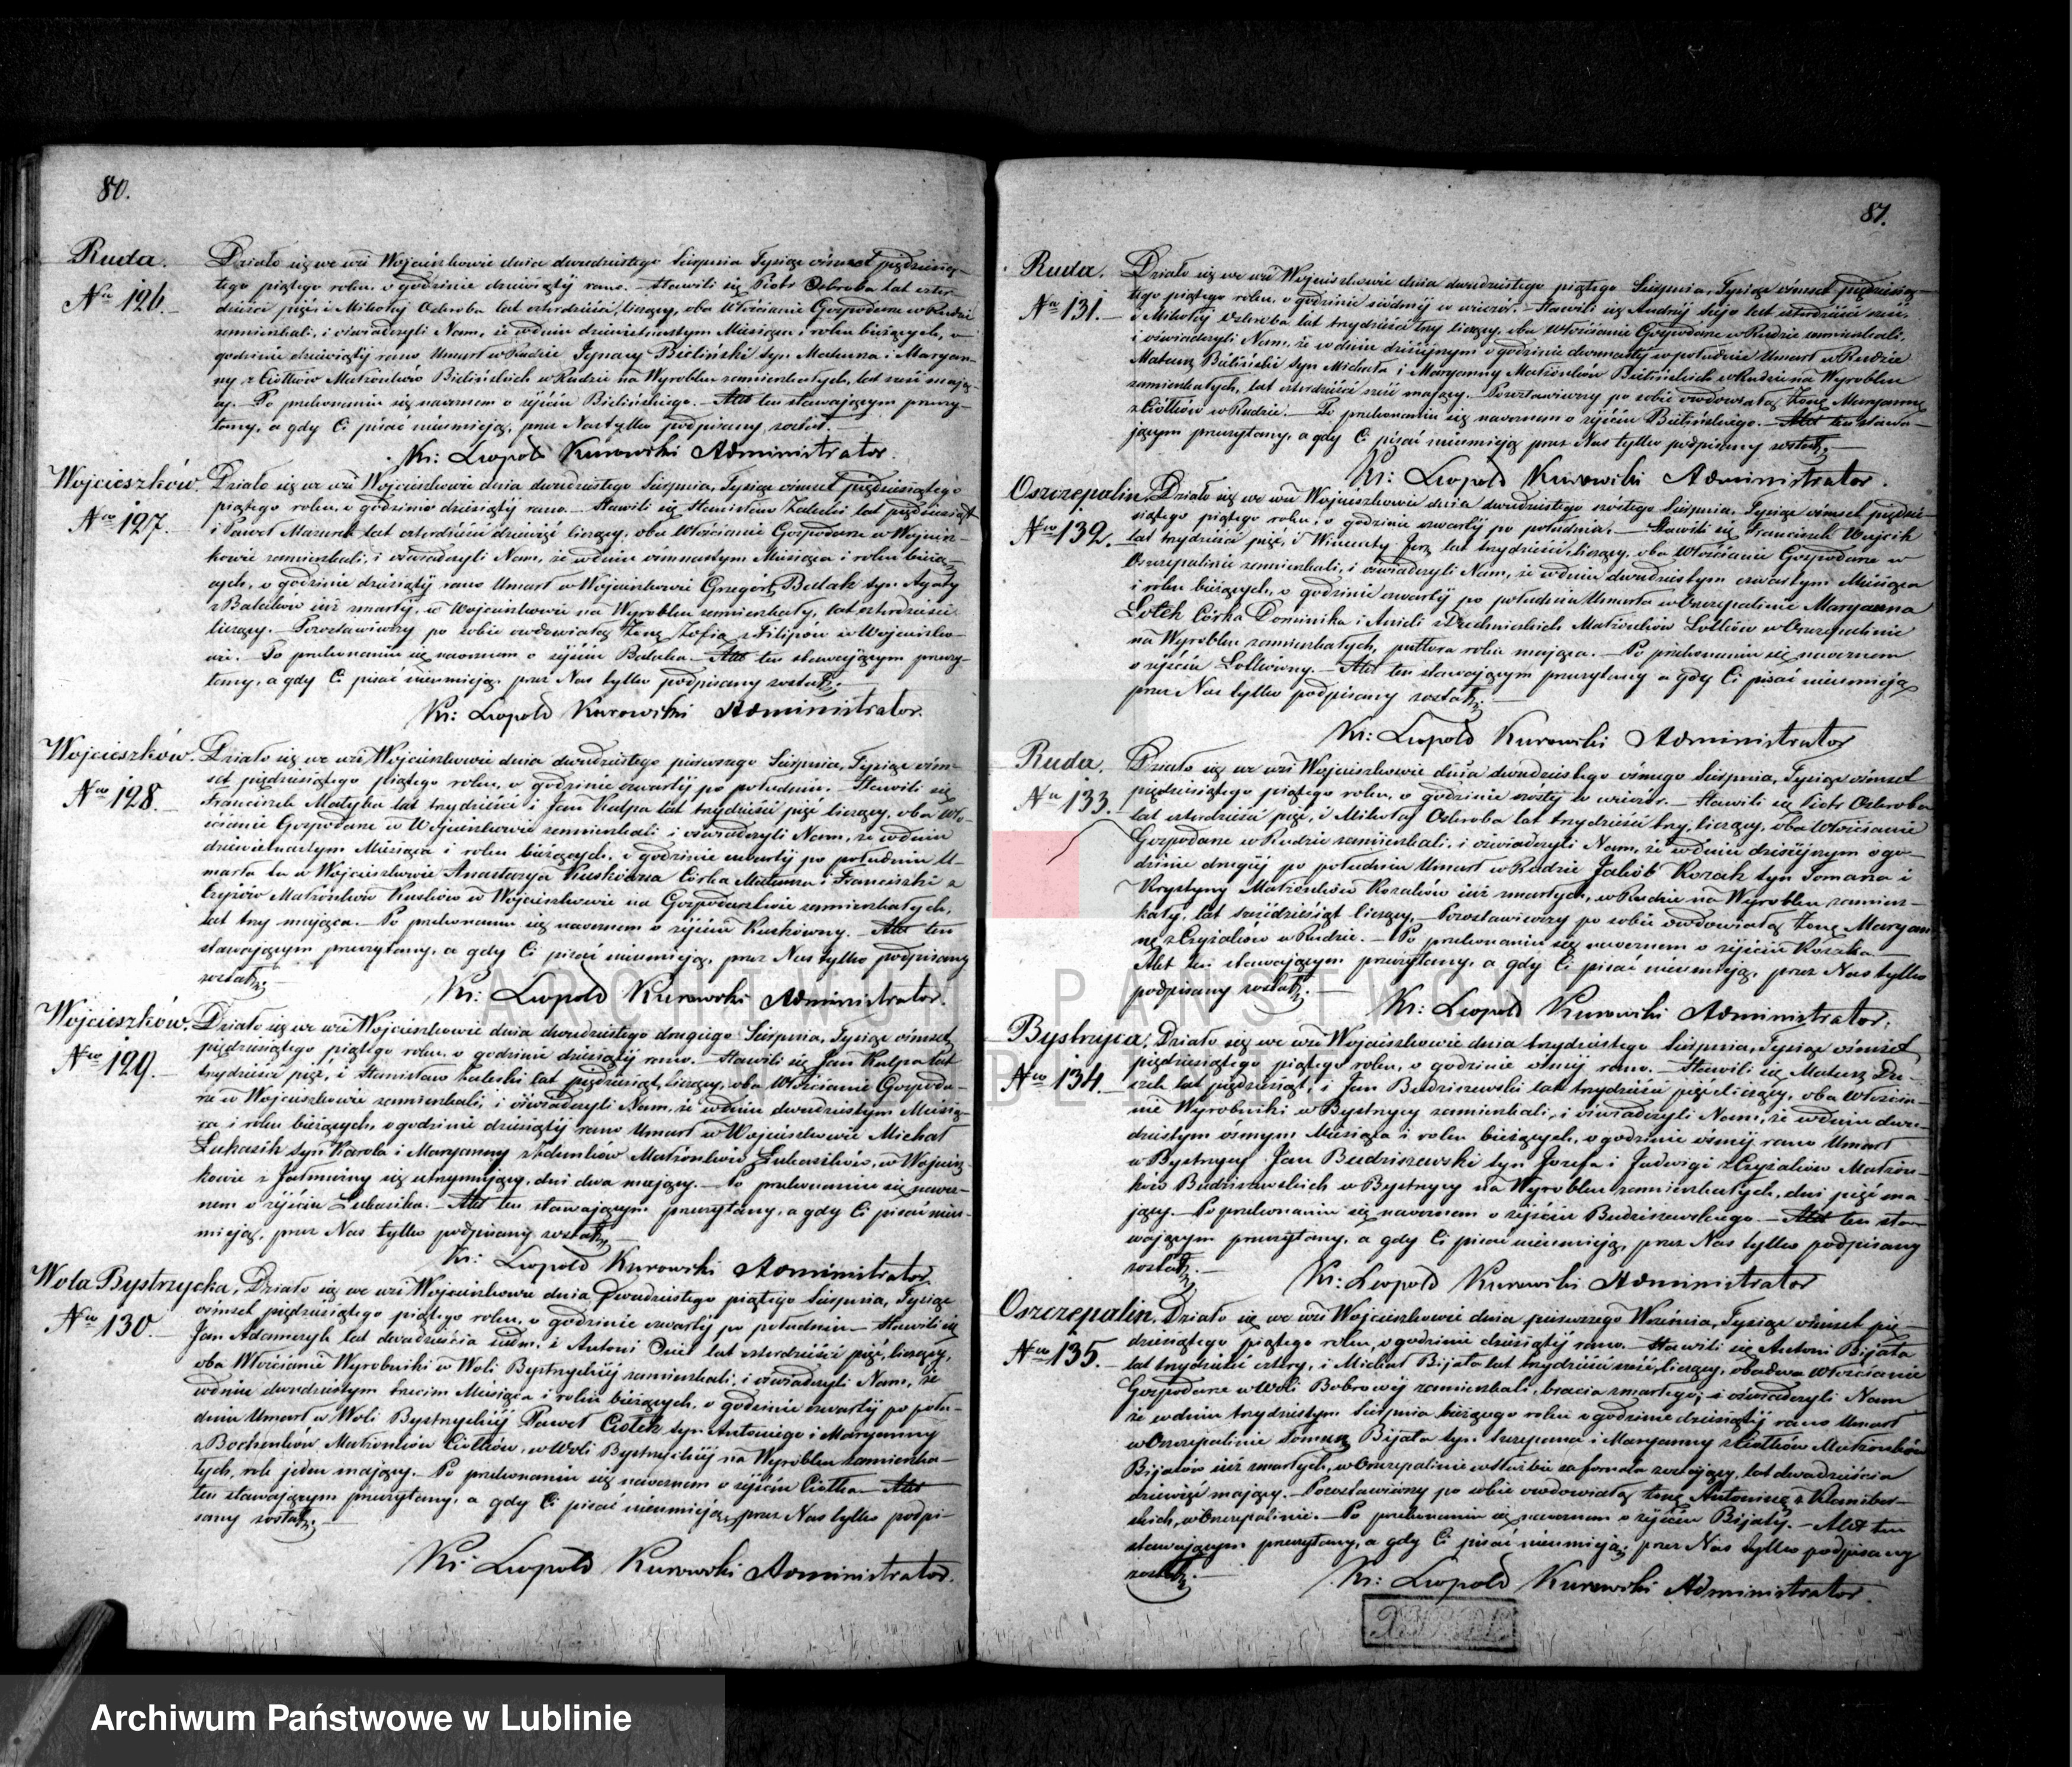 80.
Ruda.
Nro 126.
Działo się we wsi Wojcieszkowie dnia dwudziestego Sierpnia Tysiąc ośmset pięćdziesią-
tego piątego roku, o godzinie dziewiątej rano. — Stawili się Piotr Ostroba lat czter-
dzieści pięć i Mikołaj Ostroba lat czterdzieści, liczący, oba Włościanie Gospodarze w Rudzie
zamieszkali, i oświadczyli Nam, że w dniu dziewiętnastym Miesiąca i roku bieżących, o
godzinie dziewiątej rano Umarł w Rudzie Ignacy Bieliński syn Mateusza i Maryan-
ny z Ciołków Małżonków Bielińskich w Rudzie na Wyrobku zamieszkałych, lat sześć mają-
cy. Po przekonaniu się naocznem o zejściu Bielińskiego. — Akt ten stawającym przeczy-
tany, a gdy Ci pisać nieumieją, przez Nas tylko podpisany został. —
Xs: Leopold Kurowski Administrator.
Wojcieszków.
Nro 127.
Działo się we wsi Wojcieszkowie dnia dwudziestego Sierpnia, Tysiąc ośmset pięćdziesiątego
piątego roku, o godzinie dziesiątej rano. — Stawili się Stanisław Zaleski lat pięćdziesiąt
i Paweł Mazurek lat czterdzieści dziewięć liczący, oba Włościanie Gospodarze w Wojciesz-
kowie zamieszkali, i oświadczyli Nam, że w dniu ośmnastym Miesiąca i roku bieżą-
cych, o godzinie dziesiątej rano Umarł w Wojcieszkowie Grzegórz Batak syn Agaty
z Bataków już zmarłej, w Wojcieszkowie na Wyrobku zamieszkały, lat czterdzieści
liczący. Pozostawiwszy po sobie owdowiałą Żonę Zofią z Filipów w Wojcieszko-
wie. Po przekonaniu się naocznem o zejściu Bataka. — Akt ten stawającym przeczy-
tany, a gdy Ci pisać nieumieją, przez Nas tylko podpisany został. —
Xs: Leopold Kurowski Administrator.
Wojcieszków.
Nro 128.
Działo się we wsi Wojcieszkowie dnia dwudziestego pierwszego Sierpnia, Tysiąc ośm-
set pięćdziesiątego piątego roku, o godzinie czwartej po południu. Stawili się
Franciszek Matyka lat trzydzieści i Jan Kałpa lat trzydzieści pięć liczący, oba Wło-
ścianie Gospodarze w Wojcieszkowie zamieszkali i oświadczyli Nam, że w dniu
dziewiętnastym Miesiąca i roku bieżących, o godzinie czwartej po południu U-
marła tu w Wojcieszkowie Anastazya Kuskówna Córka Mateusza i Franciszki z
Czyżów Małżonków Kusków w Wojcieszkowie na Gospodarstwie zamieszkałych,
lat trzy mająca. Po przekonaniu się naocznem o zejściu Kuskówny. — Akt ten
stawającym przeczytany, a gdy Ci pisać nieumieją, przez Nas tylko podpisany
został.
Xs: Leopold Kurowski Administrator.
Wojcieszków.
Nro 129.
Działo się we wsi Wojcieszkowie dnia dwudziestego drugiego Sierpnia, Tysiąc ośmset
pięćdziesiątego piątego roku, o godzinie dziesiątej rano. — Stawili się Jan Kałpa lat
trzydzieści pięć, i Stanisław Zaleski lat pięćdziesiąt, liczący, oba Włościanie Gospoda-
rze w Wojcieszkowie zamieszkali, i oświadczyli Nam, że w dniu dwudziestym Miesią-
ca i roku bieżących, o godzinie dziesiątej rano Umarł w Wojcieszkowie Michał
Łukasik syn Karola i Maryanny z Małżonków Łukasików, w Wojciesz-
kowie z Jałmużny się utrzymujący, dni dwa mający. — Po przekonaniu się naocz-
nem o zejściu Łukasika. — Akt ten stawającym przeczytany, a gdy Ci pisać nieu-
mieją, przez Nas tylko podpisany został. —
Xs: Leopold Kurowski Administrator
Wola Bystrzycka,
Nro 130.
Działo się we wsi Wojcieszkowie dnia Dwudziestego piątego Sierpnia, Tysiąc
ośmset pięćdziesiątego piątego roku, o godzinie czwartej po południu. — Stawili się
Jan Adamczyk lat dwadzieścia siedm, i Antoni lat czterdzieści pięć, liczący,
oba Włościanie Wyrobniki w Woli Bystrzyckiej zamieszkali, i oświadczyli Nam, że
w dniu dwudziestym trzecim Miesiąca i roku bieżących, o godzinie czwartej po połu-
dniu Umarł w Woli Bystrzyckiej Paweł Ciołek syn Antoniego i Maryanny
z Bochenków Małżonków Ciołków, w Woli Bystrzyckiej na Wyrobku zamieszka-
łych, rok jeden mający. Po przekonaniu się naocznem o zejściu Ciołka. — Akt
ten stawającym przeczytany, a gdy Ci pisać nieumieją, przez Nas tylko podpi-
sany został. —
Xs: Leopold Kurowski Administrator.
81.
Ruda.
Nro 131.
Działo się we wsi Wojcieszkowie dnia dwudziestego piątego Sierpnia, Tysiąc ośmset pięćdziesią-
tego piątego roku, o godzinie siódmej w wieczór. — Stawili się Andrzej lat czterdzieści sześć,
i Mikołaj Ostroba lat trzydzieści trzy liczący, oba Włościanie Gospodarze w Rudzie zamieszkali,
i oświadczyli Nam, że w dniu dzisiejszym o godzinie dwunastej w południe Umarł w Rudzie
Mateusz Bieliński syn Michała i Maryanny Małżonków Bielińskich w Rudzie na Wyrobku
zamieszkałych, lat czterdzieści sześć mający. Pozostawiwszy po sobie owdowiałą Żonę Maryannę
z Ciołków w Rudzie. — Po przekonaniu się naocznem o zejściu Bielińskiego. — Akt ten stawa-
jącym przeczytany, a gdy Ci pisać nieumieją przez Nas tylko podpisany został. —
Xs: Leopold Kurowski Administrator.
Oszczepalin,
Nro 132.
Działo się we wsi Wojcieszkowie dnia dwudziestego szóstego Sierpnia, Tysiąc ośmset pięćdzie-
siątego piątego roku, o godzinie czwartej po południu. — Stawili się Franciszek Wujcik
lat trzydzieści pięć, i Wincenty Jerz lat trzydzieści, liczący, oba Włościanie Gospodarze w
Oszczepalinie zamieszkali, i oświadczyli Nam, że w dniu dwudziestym czwartym Miesiąca
i roku bieżących, o godzinie czwartej po południu Umarła w Oszczepalinie Maryanna
Lotek Córka Dominika i Anieli z Małżonków Lotków w Oszczepalinie
na Wyrobku zamieszkałych, półtora roku mająca. — Po przekonaniu się naocznem
o zejściu Lotkówny. — Akt ten stawającym przeczytany a gdy Ci pisać nieumieją
przez Nas tylko podpisany został. —
Xs: Leopold Kurowski Administrator
Ruda.
Nro 133.
Działo się we wsi Wojcieszkowie dnia dwudziestego ósmego Sierpnia, Tysiąc ośmset
pięćdziesiątego piątego roku, o godzinie szóstej w wieczór. — Stawili się Piotr Ostroba
lat czterdzieści pięć, i Mikołaj Ostroba lat trzydzieści trzy, liczący, oba Włościanie
Gospodarze w Rudzie zamieszkali, i oświadczyli Nam, że w dniu dzisiejszym o go-
dzinie drugiej po południu Umarł w Rudzie Jakób Kozak syn Tomasza i
Krystyny Małżonków Kozaków już zmarłych, w Rudzie na Wyrobku zamiesz-
kały, lat sześćdziesiąt liczący. — Pozostawiwszy po sobie owdowiałą Żonę Maryan-
nę z Czyżaków w Rudzie. — Po przekonaniu się naocznem o zejściu Kozaka —
Akt ten stawającym przeczytany, a gdy Ci pisać nieumieją, przez Nas tylko
podpisany został. —
Xs: Leopold Kurowski Administrator.
Bystrzyca,
Nro 134.
Działo się we wsi Wojcieszkowie dnia trzydziestego Sierpnia, Tysiąc ośmset
pięćdziesiątego piątego roku, o godzinie ósmej rano. — Stawili się Mateusz
lat pięćdziesiąt, i Jan Budziszewski lat trzydzieści pięć liczący, oba Włościa-
nie Wyrobniki w Bystrzycy zamieszkali, i oświadczyli Nam, że w dniu dwu-
dziestym ósmym Miesiąca i roku bieżących, o godzinie ósmej rano Umarł
w Bystrzycy Jan Budziszewski syn Józefa i Jadwigi z Czyżaków Małżon-
ków Budziszewskich w Bystrzycy na Wyrobku zamieszkałych, dni pięć ma-
jący. — Po przekonaniu się naocznem o zejściu Budziszewskiego — Akt ten sta-
wającym przeczytany, a gdy Ci pisać nieumieją, przez Nas tylko podpisany
został. —
Xs: Leopold Kurowski Administrator
Oszczepalin.
Nro 135.
Działo się we wsi Wojcieszkowie dnia pierwszego Września, Tysiąc ośmset pięć-
dziesiątego piątego roku, o godzinie dziesiątej rano. — Stawili się Antoni Bijata
lat trzydzieści cztery, i Michał Bijata lat trzydzieści sześć, liczący, obadwa Włościanie
Gospodarze w Woli Bobrowej zamieszkali, bracia zmarłego, i oświadczyli Nam
że w dniu trzydziestym Sierpnia bieżącego roku o godzinie dziesiątej rano Umarł
w Oszczepalinie Tomasz Bijata syn Szczepana i Maryanny z Ciołków Małżonków
Bijatów już zmarłych, w Oszczepalinie w służbie za fornala zostający, lat dwadzieścia
dziewięć mający. — Pozostawiwszy po sobie owdowiałą żonę Antoninę z
skich, w Oszczepalinie. — Po przekonaniu się naocznem o zejściu Bijaty. — Akt ten
stawającym przeczytany, a gdy Ci pisać nieumieją, przez Nas tylko podpisany
został. —
Xs: Leopold Kurowski Administrator.
ARCHIWUM PAŃSTWOWE
W LUBLINIE
Archiwum Państwowe w Lublinie